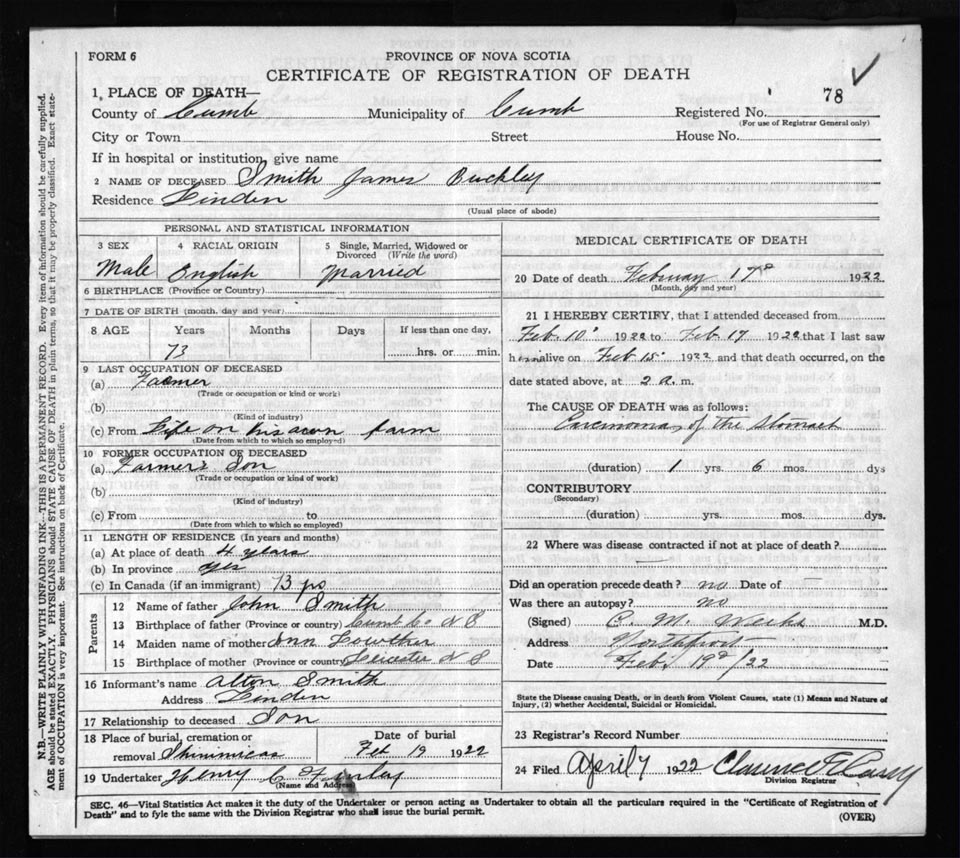 FORM 6
PROVINCE OF NOVA SCOTIA
CERTIFICATE OF REGISTRATION OF DEATH
1. PLACE OF DEATH—
County of Cumb Municipality of Cumb Registered No. 78
(For use of Registrar General only)
City or Town Street House No.
If in hospital or institution, give name
2 NAME OF DECEASED Smith James Buckley
Residence Linden
(Usual place of abode)
PERSONAL AND STATISTICAL INFORMATION
3 SEX 4 RACIAL ORIGIN 5 Single, Married, Widowed or Divorced (Write the word)
Male English Married
6 BIRTHPLACE (Province or Country)
7 DATE OF BIRTH (month, day and year)
8 AGE Years Months Days If less than one day,
73 hrs. or min.
9 LAST OCCUPATION OF DECEASED
(a) Farmer
(Trade or occupation or kind or work)
(b)
(Kind of industry)
(c) From Life on his own farm
(Date from which to which so employed)
10 FORMER OCCUPATION OF DECEASED
(a) Farmer's Son
(Trade or occupation or kind of work)
(b)
(Kind of industry)
(c) From to
(Date from which to which so employed)
11 LENGTH OF RESIDENCE (In years and months)
(a) At place of death 4 years
(b) In province yes
(c) In Canada (if an immigrant) 73
Parents
12 Name of father John Smith
13 Birthplace of father (Province or country) Cumb Co N S
14 Maiden name of mother Ann Lowther
15 Birthplace of mother (Province or country) Leicester N S
16 Informant's name Alton Smith
Address Linden
17 Relationship to deceased Son
18 Place of burial, cremation or Date of burial
removal Shinimicas Feb 19 1922
19 Undertaker Henry C Finlay
(Name and Address)
MEDICAL CERTIFICATE OF DEATH
20 Date of death February 17 1922
(Month, day and year)
21 I HEREBY CERTIFY, that I attended deceased from
Feb. 10 1922 to Feb 17 1922 that I last saw
him alive on Feb 15 1922 and that death occurred, on the
date stated above, at 2 a. m.
The CAUSE OF DEATH was as follows:
Carcinoma of the Stomach
(duration) 1 yrs. 6 mos. dys
CONTRIBUTORY
(Secondary)
(duration) yrs. mos. dys.
22 Where was disease contracted if not at place of death?
Did an operation precede death? no Date of —
Was there an autopsy? no
(Signed) C. M. M.D.
Address Northport
Date Feb 19 /22
State the Disease causing Death, or in death from Violent Causes, state (1) Means and Nature of
Injury, (2) whether Accidental, Suicidal or Homicidal.
23 Registrar's Record Number
24 Filed April 7 1922 Clarence
Division Registrar
SEC. 46—Vital Statistics Act makes it the duty of the Undertaker or person acting as Undertaker to obtain all the particulars required in the "Certificate of Registration of
Death" and to fyle the same with the Division Registrar who shall issue the burial permit.
(OVER)
N.B.—WRITE PLAINLY WITH UNFADING INK—THIS IS A PERMANENT RECORD. Every item of information should be carefully supplied.
AGE should be stated EXACTLY. PHYSICIANS should STATE CAUSE OF DEATH in plain terms, so that it may be properly classified. Exact state-
ment of OCCUPATION is very important. See instructions on back of Certificate.